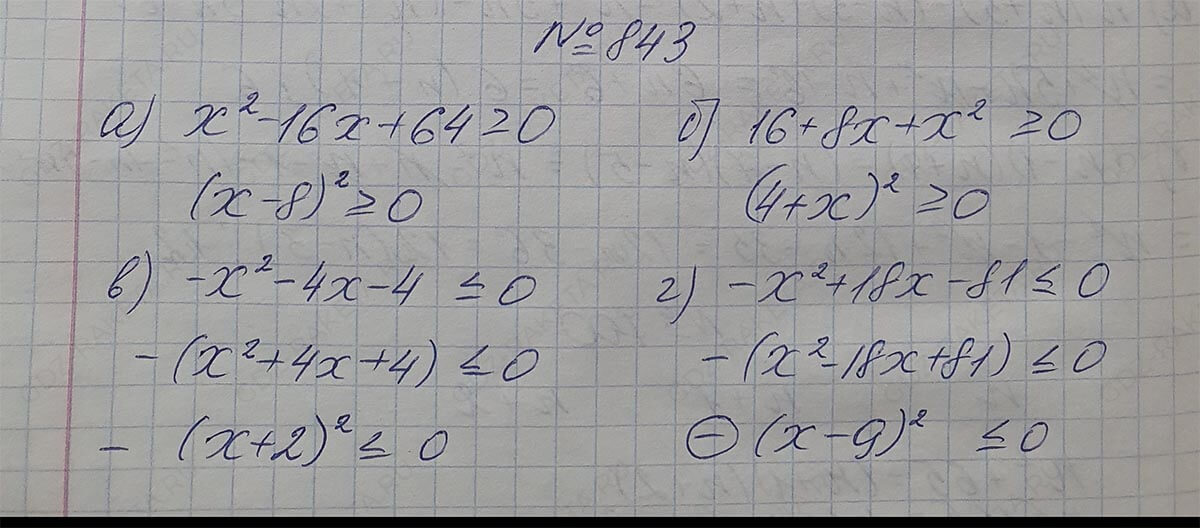 № 843
а) x² - 16x + 64 ≥ 0
(x - 8)² ≥ 0
б) 16 + 8x + x² ≥ 0
(4 + x)² ≥ 0
в) -x² - 4x - 4 ≤ 0
- (x² + 4x + 4) ≤ 0
- (x + 2)² ≤ 0
г) -x² + 18x - 81 ≤ 0
- (x² - 18x + 81) ≤ 0
⊖ (x - 9)² ≤ 0